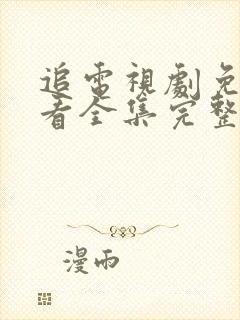 追電視劇免
看全集完整
漫雨